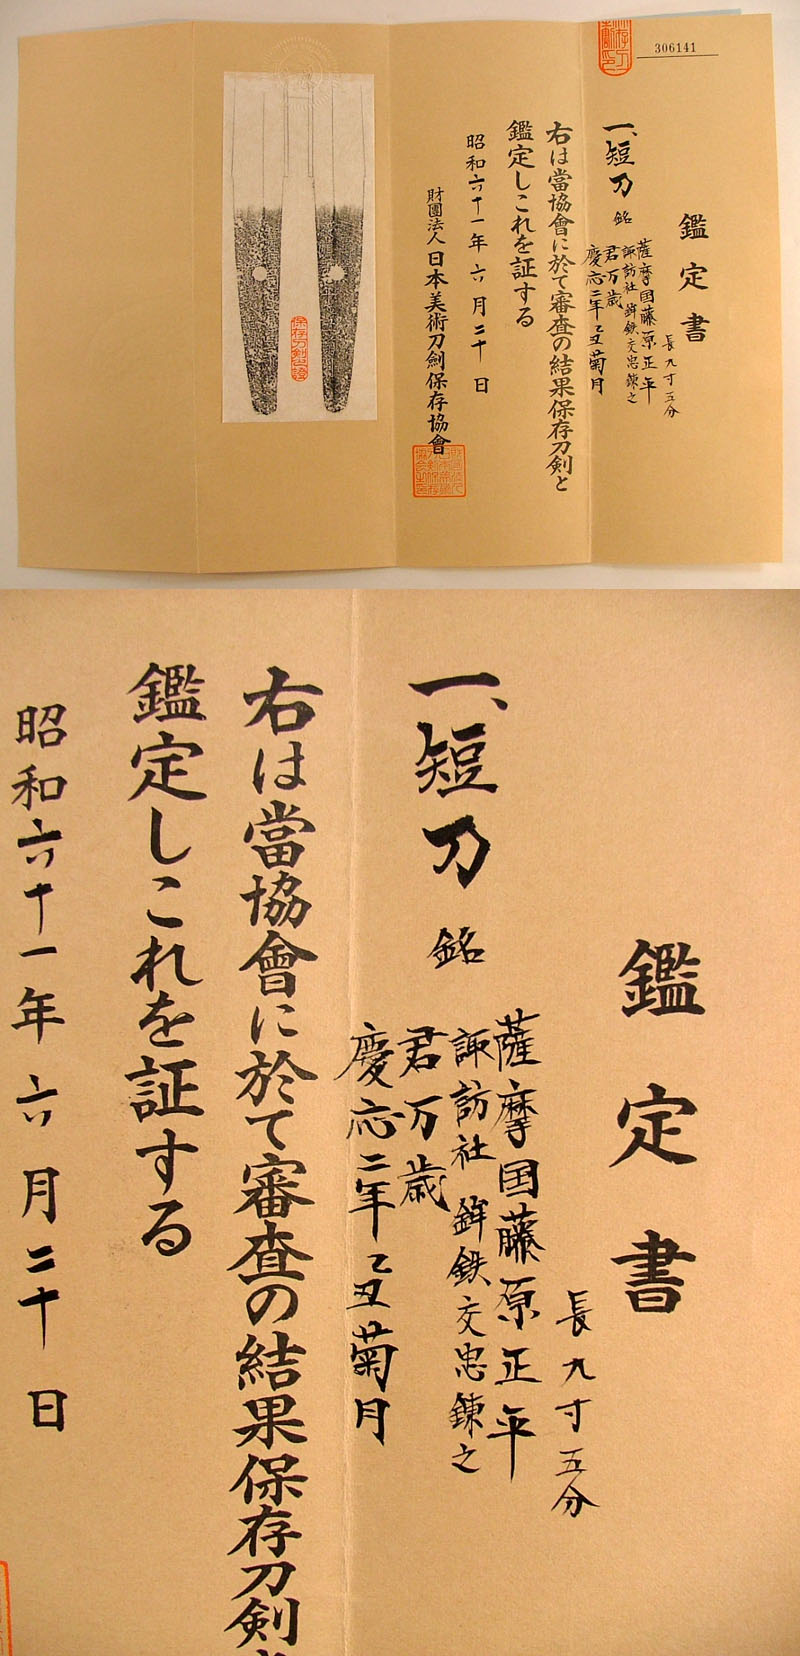 306141
鑑定書
長九寸五分
一、短刀 銘
薩摩国藤原正平
諏訪社鉾鉄交忠錬之
君万歳
慶応二年乙丑菊月
右は當協會に於て審査の結果保存刀剣と
鑑定しこれを証する
昭和六十一年六月二十日
財團法人日本美術刀劍保存協會
保存刀剣之證
鑑定書
長九寸五分
一、短刀 銘
薩摩国藤原正平
諏訪社鉾鉄交忠錬之
君万歳
慶応二年乙丑菊月
右は當協會に於て審査の結果保存刀剣
鑑定しこれを証する
昭和六十一年六月二十日